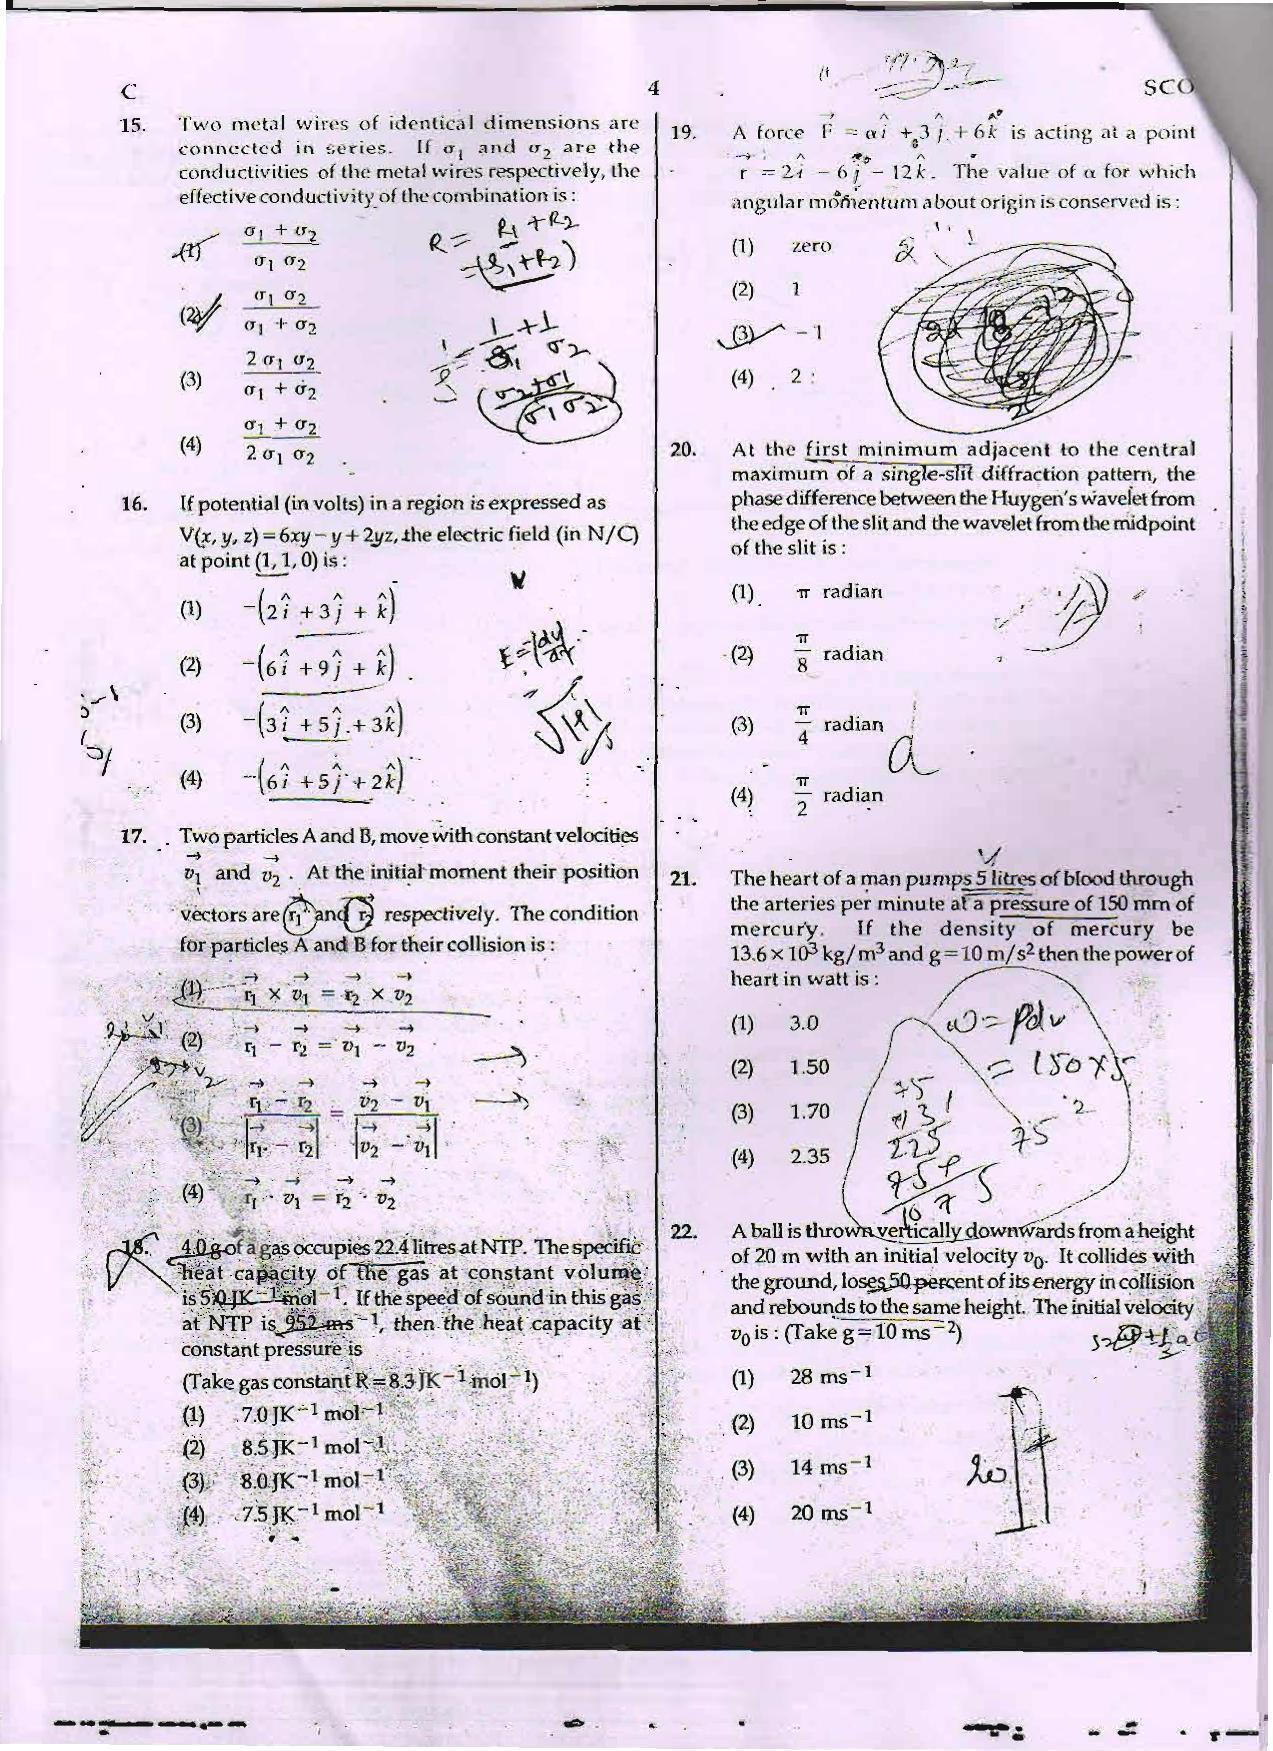 C
4
SCO
15. Two metal wires of identical dimensions are
connected in series. If σ1 and σ2 are the
conductivities of the metal wires respectively, the
effective conductivity of the combination is :
(1) (σ1 + σ2) / (σ1 σ2)
(2) (σ1 σ2) / (σ1 + σ2)
(3) (2 σ1 σ2) / (σ1 + σ2)
(4) (σ1 + σ2) / (2 σ1 σ2)
R = R1 + R2
16. If potential (in volts) in a region is expressed as
V(x, y, z) = 6xy − y + 2yz, the electric field (in N/C)
at point (1, 1, 0) is :
(1) −(2î + 3ĵ + k̂)
(2) −(6î + 9ĵ + k̂)
(3) −(3î + 5ĵ + 3k̂)
(4) −(6î + 5ĵ + 2k̂)
17. Two particles A and B, move with constant velocities
v⃗1 and v⃗2 . At the initial moment their position
vectors are r⃗1 and r⃗2 respectively. The condition
for particles A and B for their collision is :
(1) r⃗1 × v⃗1 = r⃗2 × v⃗2
(2) r⃗1 − r⃗2 = v⃗1 − v⃗2
(3) (r⃗1 − r⃗2) / |r⃗1 − r⃗2| = (v⃗2 − v⃗1) / |v⃗2 − v⃗1|
(4) r⃗1 · v⃗1 = r⃗2 · v⃗2
18. 4.0 g of a gas occupies 22.4 litres at NTP. The specific
heat capacity of the gas at constant volume
is 5.0 JK−1 mol−1. If the speed of sound in this gas
at NTP is 952 ms−1, then the heat capacity at
constant pressure is
(Take gas constant R = 8.3 JK−1 mol−1)
(1) 7.0 JK−1 mol−1
(2) 8.5 JK−1 mol−1
(3) 8.0 JK−1 mol−1
(4) 7.5 JK−1 mol−1
19. A force F⃗ = αî + 3ĵ + 6k̂ is acting at a point
r⃗ = 2î − 6ĵ − 12k̂. The value of α for which
angular momentum about origin is conserved is :
(1) zero
(2) 1
(3) −1
(4) 2
20. At the first minimum adjacent to the central
maximum of a single-slit diffraction pattern, the
phase difference between the Huygen's wavelet from
the edge of the slit and the wavelet from the midpoint
of the slit is :
(1) π radian
(2) π/8 radian
(3) π/4 radian
(4) π/2 radian
a
21. The heart of a man pumps 5 litres of blood through
the arteries per minute at a pressure of 150 mm of
mercury. If the density of mercury be
13.6 × 10³ kg/m³ and g = 10 m/s² then the power of
heart in watt is :
(1) 3.0
(2) 1.50
(3) 1.70
(4) 2.35
ω = Pdv
= 150 × 5
22. A ball is thrown vertically downwards from a height
of 20 m with an initial velocity v0. It collides with
the ground, loses 50 percent of its energy in collision
and rebounds to the same height. The initial velocity
v0 is : (Take g = 10 ms−2)
(1) 28 ms−1
(2) 10 ms−1
(3) 14 ms−1
(4) 20 ms−1
20